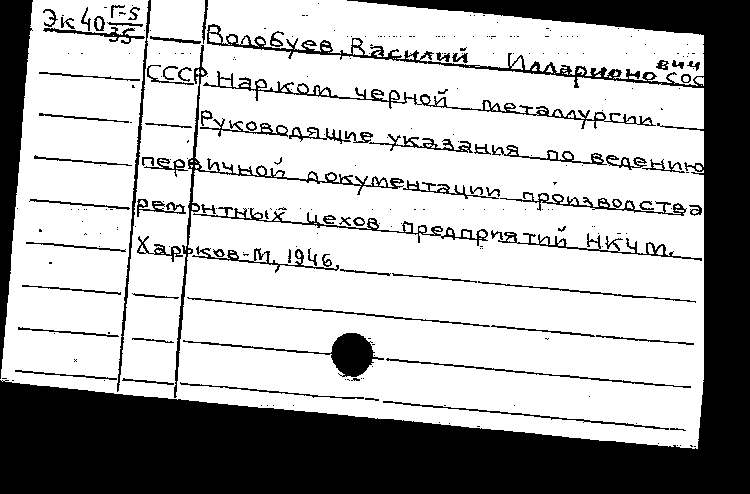 Эк40 Г-5/35
Волобуев, Василий Илларионович сос
СССР. Нар.ком. черной металлургии.
Руководящие указания по ведению
первичной документации производства
ремонтных цехов предприятий НКЧМ.
Харьков-М., 1946.